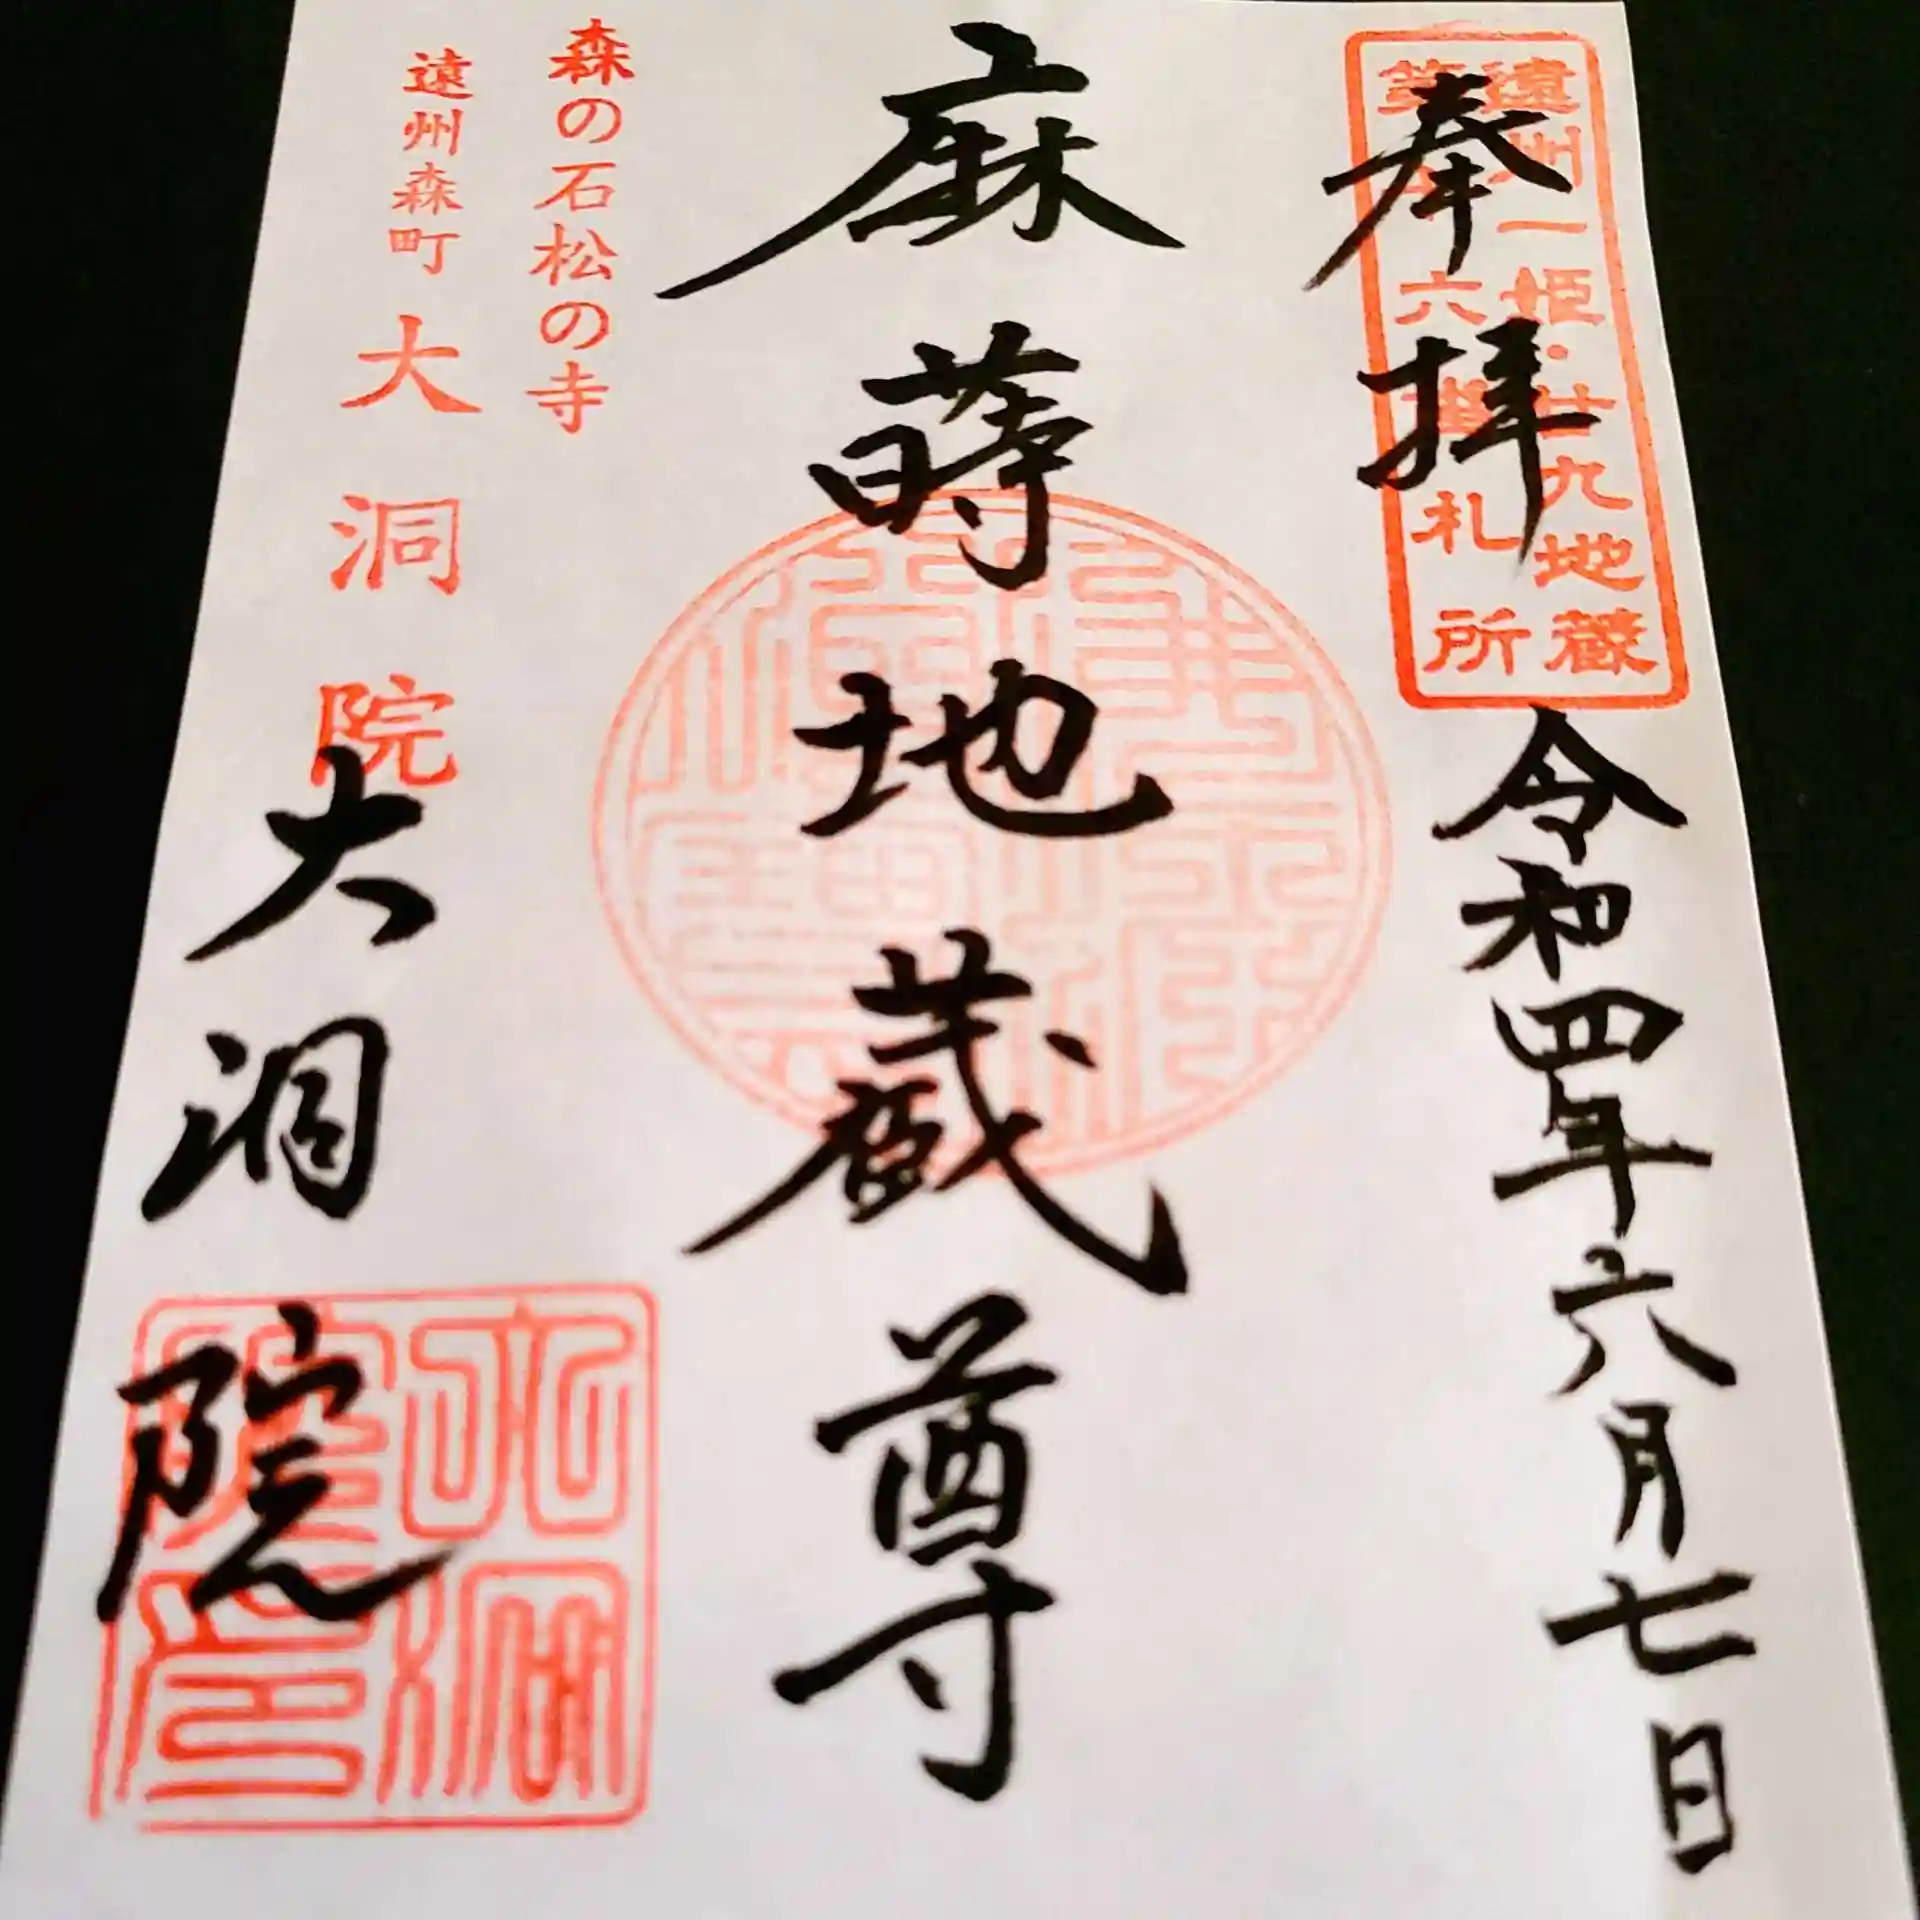 奉拝
遠州一姫・廿九地蔵
六番札所
令和四年六月七日
麻蒔地蔵尊
森の石松の寺
遠州森町 大洞院
大洞院